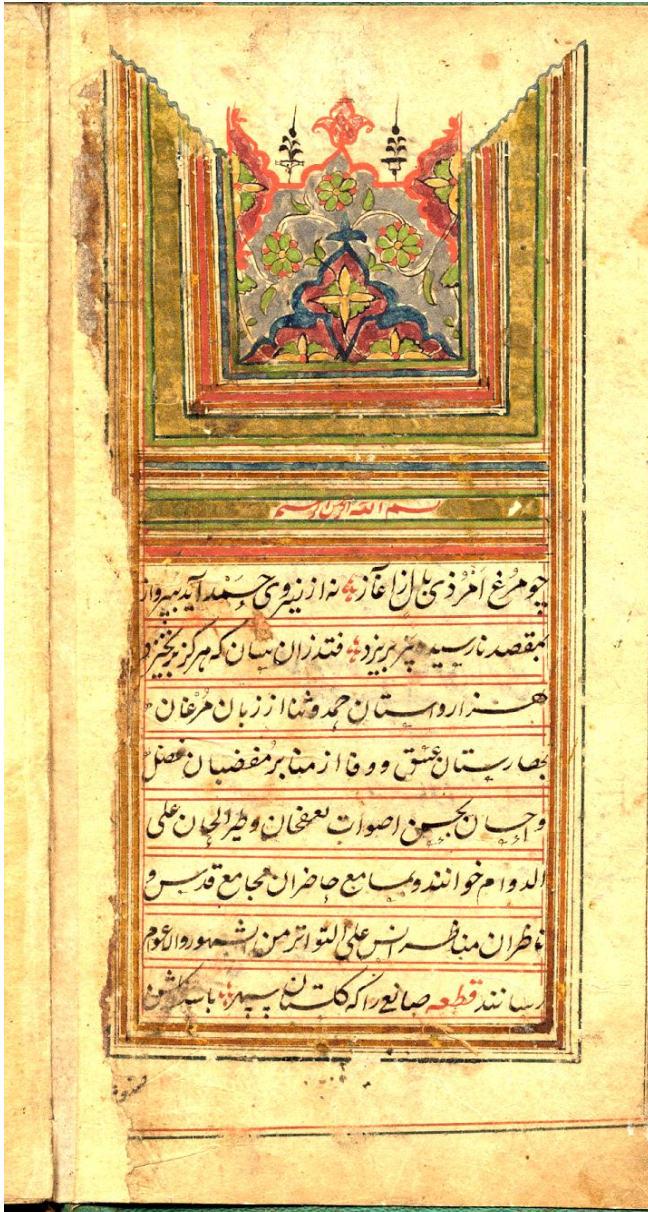 بسم الله الرحمن الرحیم
چو مرغ امر ذی بال از آغاز نه از نیروی حمد آید بپرواز
بمقصد نارسیده پر بریزد فتد زان سان که هرگز برنخیزد
هزار داستان حمد و ثنا از زبان مرغان
بهارستان عشق و وفا از منابر فضل
و احسان بحسن اصوات الحان علی
الدوام خوانند و بمسامع حاضران مجامع قدس و
ناظران مناظر انس علی التواتر من الشهور والاعوام
رسانند قطعه صانع را که گلستان سپهر باشد گلشن